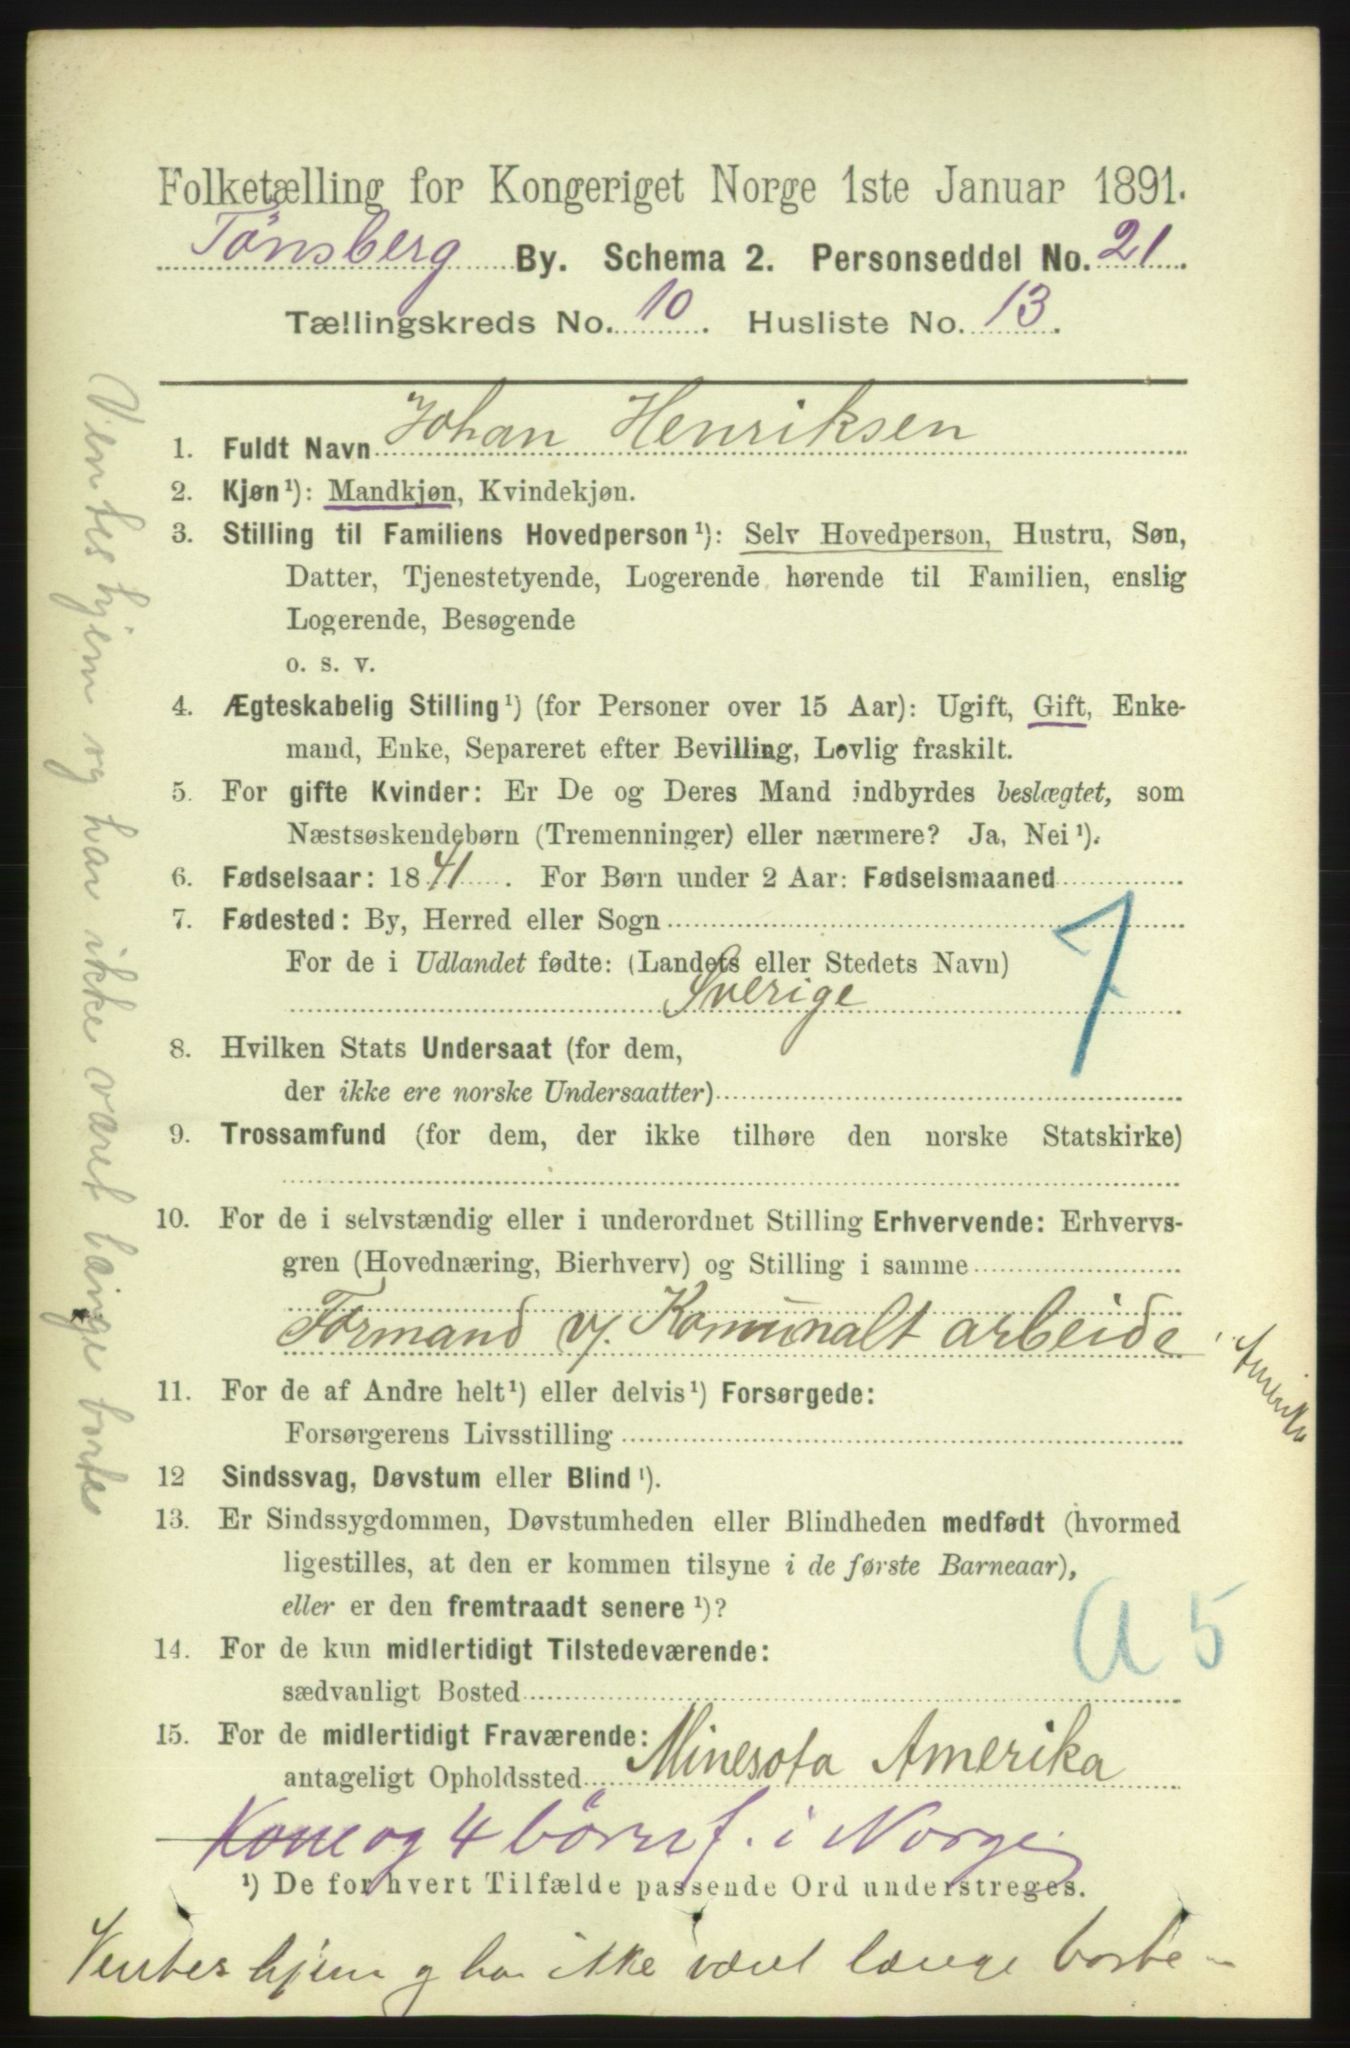 Folketælling for Kongeriget Norge 1ste Januar 1891.
Tönsberg By. Schema 2. Personseddel No. 21.
Tællingskreds No. 10. Husliste No. 13.
1. Fuldt Navn Johan Henriksen
2. Kjøn¹): Mandkjøn, Kvindekjøn.
3. Stilling til Familiens Hovedperson¹): Selv Hovedperson, Hustru, Søn,
Datter, Tjenestetyende, Logerende hørende til Familien, enslig
Logerende, Besøgende
o. s. v.
4. Ægteskabelig Stilling¹) (for Personer over 15 Aar): Ugift, Gift, Enke-
mand, Enke, Separeret efter Bevilling, Lovlig fraskilt.
5. For gifte Kvinder: Er De og Deres Mand indbyrdes beslægtet, som
Næstsøskendebørn (Tremenninger) eller nærmere? Ja, Nei¹).
6. Fødselsaar: 1841. For Børn under 2 Aar: Fødselsmaaned
7. Fødested: By, Herred eller Sogn
For de i Udlandet fødte: (Landets eller Stedets Navn)
Sverige
7
8. Hvilken Stats Undersaat (for dem,
der ikke ere norske Undersaatter)
9. Trossamfund (for dem, der ikke tilhøre den norske Statskirke)
10. For de i selvstændig eller i underordnet Stilling Erhvervende: Erhvervs-
gren (Hovednæring, Bierhverv) og Stilling i samme
Formand v/. Komunalt arbeide
Amerika
11. For de af Andre helt¹) eller delvis¹) Forsørgede:
Forsørgerens Livsstilling
12 Sindssvag, Døvstum eller Blind¹).
13. Er Sindssygdommen, Døvstumheden eller Blindheden medfødt (hvormed
ligestilles, at den er kommen tilsyne i de første Barneaar),
eller er den fremtraadt senere¹)?
A 5
14. For de kun midlertidigt Tilstedeværende:
sædvanligt Bosted
15. For de midlertidigt Fraværende:
antageligt Opholdssted Minesota Amerika
Kone og 4 börn f. i Norge
¹) De for hvert Tilfælde passende Ord understreges.
Ventes hjem og har ikke været længe borte
Ventes hjem og har ikke været længe borte